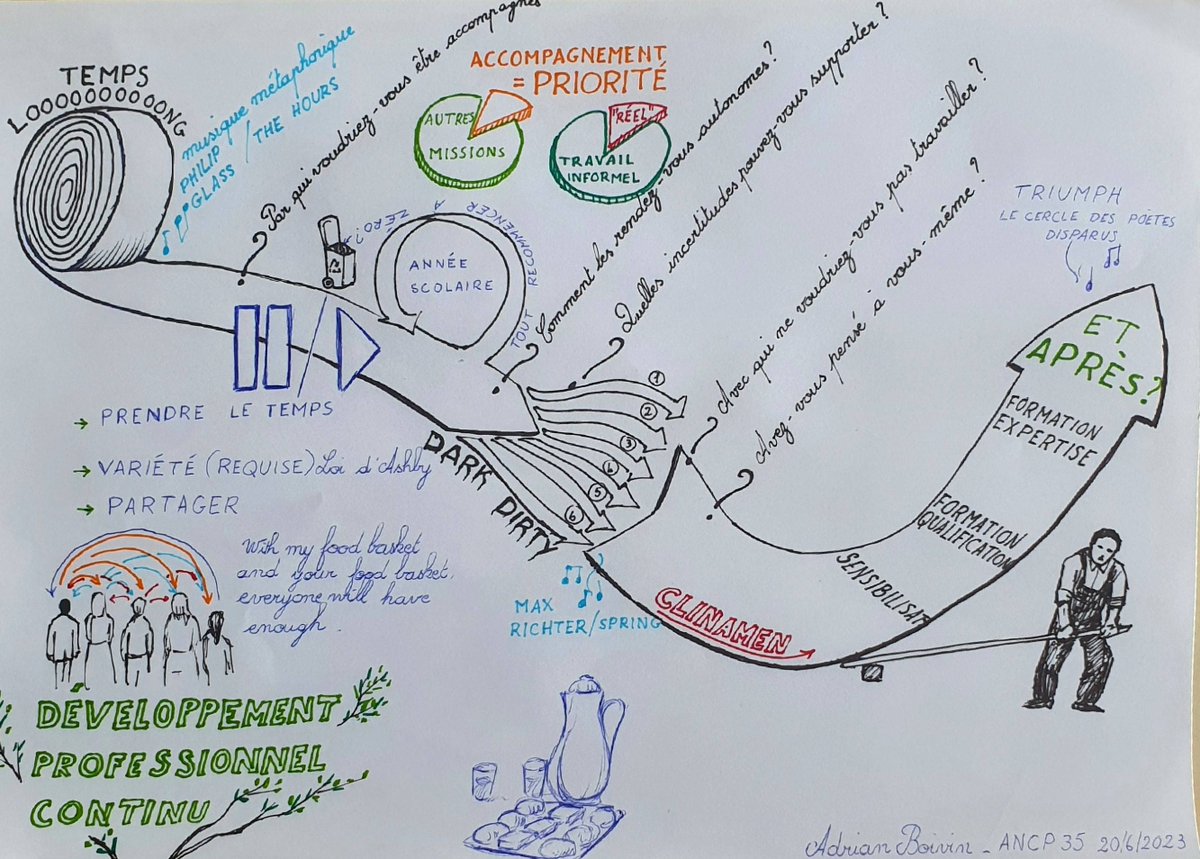 TEMPS
LOOOOOOOOOONG
musique métaphorique
PHILIP
GLASS / THE HOURS
Par qui voudriez-vous être accompagné
ACCOMPAGNEMENT
= PRIORITÉ
AUTRES
MISSIONS
"RÉEL"
TRAVAIL
INFORMEL
ANNÉE
SCOLAIRE
TOUT RECOMMENCER À ZÉRO?
Comment les rendez-vous autonomes?
Quelles incertitudes pouvez-vous supporter?
Avec qui ne voudriez-vous pas travailler?
Avez-vous pensé à vous-même?
TRIUMPH
LE CERCLE DES POÈTES
DISPARUS
ET
APRÈS?
FORMATION
EXPERTISE
FORMATION
QUALIFICATION
SENSIBILISAT
1
2
3
4
5
6
DARK
DIRTY
→ PRENDRE LE TEMPS
→ VARIÉTÉ (REQUISE) Loi d'Ashby
→ PARTAGER
With my food basket
and your food basket,
everyone will have
enough.
MAX
RICHTER/SPRING
CLINAMEN
DÉVELOPPEMENT
PROFESSIONNEL
CONTINU
Adrian Boivin - ANCP 35 20/6/2023